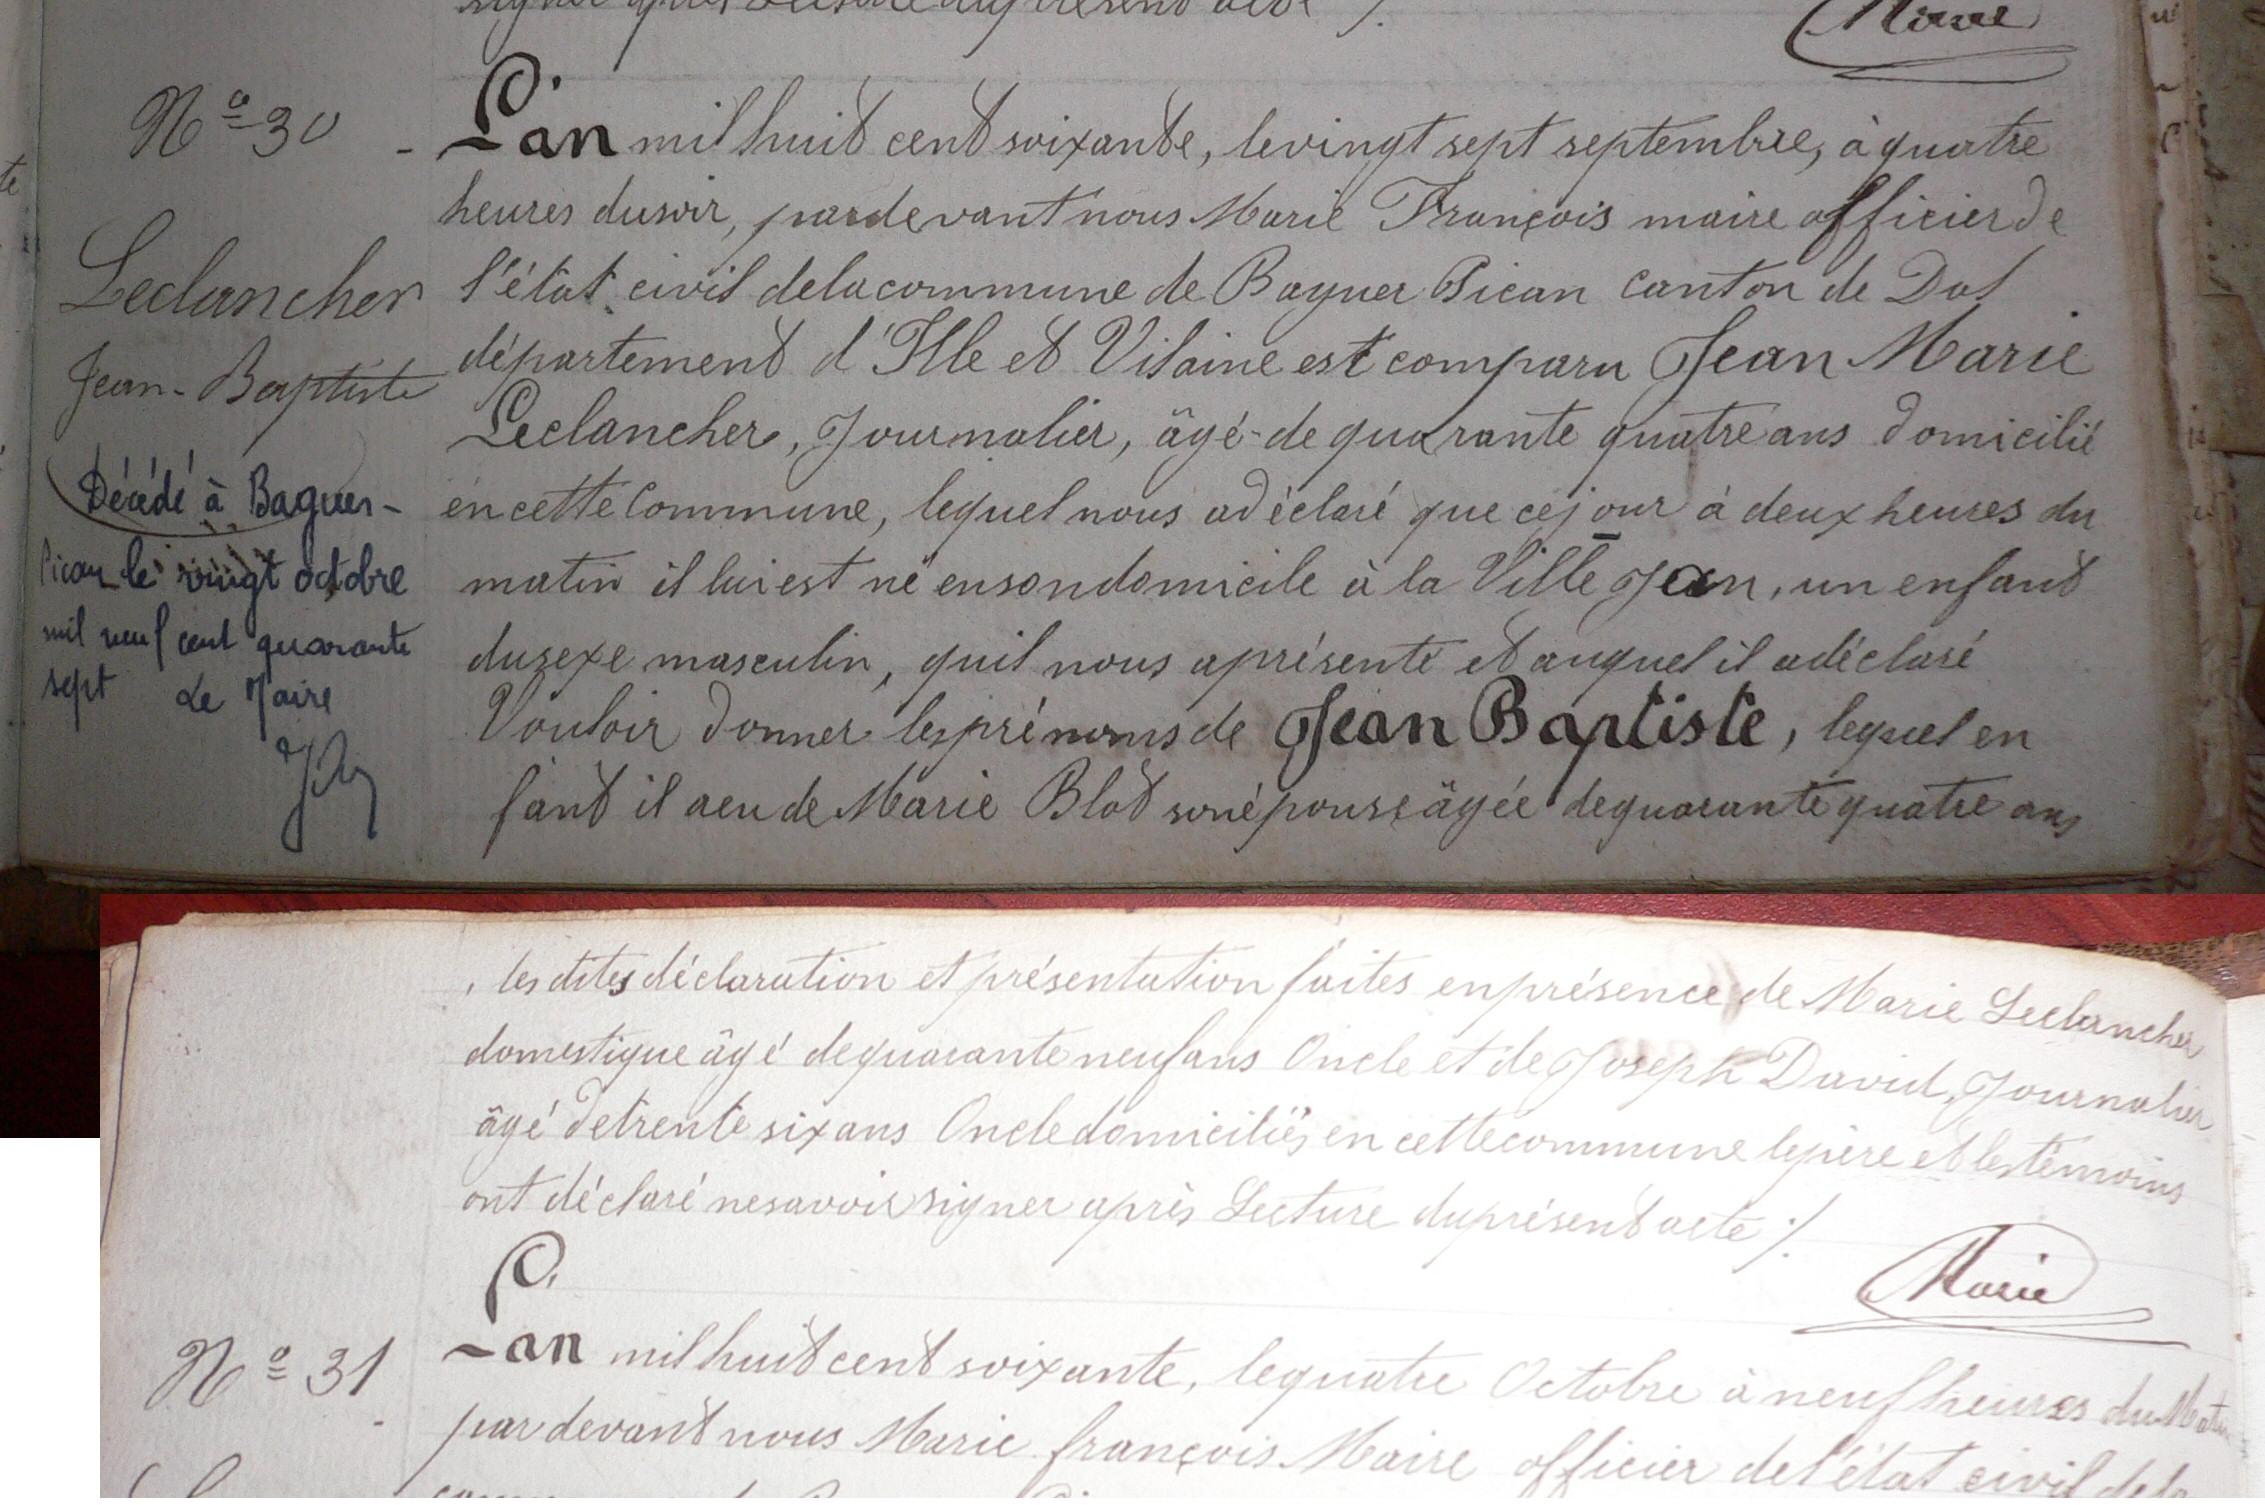 signer après lecture du présent acte ./.
Marie
Nº 30
L'an mil huit cent soixante, le vingt sept septembre, à quatre
heures du soir, par devant nous Marie François maire officier de
l'état civil de la commune de Baguer Pican canton de Dol
département d'Ille et Vilaine est comparu Jean Marie
Leclancher, Journalier, âgé de quarante quatre ans domicilié
en cette Commune, lequel nous a déclaré que ce jour à deux heures du
matin il lui est né en son domicile à la Ville Jean, un enfant
du sexe masculin, qu'il nous a présenté et auquel il a déclaré
Vouloir donner les prénoms de Jean Baptiste, lequel en
fant il a eu de Marie Blot son épouse âgée de quarante quatre ans
Leclancher
Jean-Baptiste
Décédé à Baguer-
Pican le vingt octobre
mil neuf cent quarante
sept Le Maire
, les dites déclaration et présentation faites en présence de Marie Leclancher
domestique âgé de quarante neuf ans Oncle et de Joseph David, Journalier
âgé de trente six ans Oncle domiciliés en cette commune le père et les témoins
ont déclaré ne savoir signer après Lecture du présent acte ./.
Marie
Nº 31
L'an mil huit cent soixante, le quatre Octobre à neuf heures du Matin
par devant nous Marie françois Maire officier de l'état civil de la